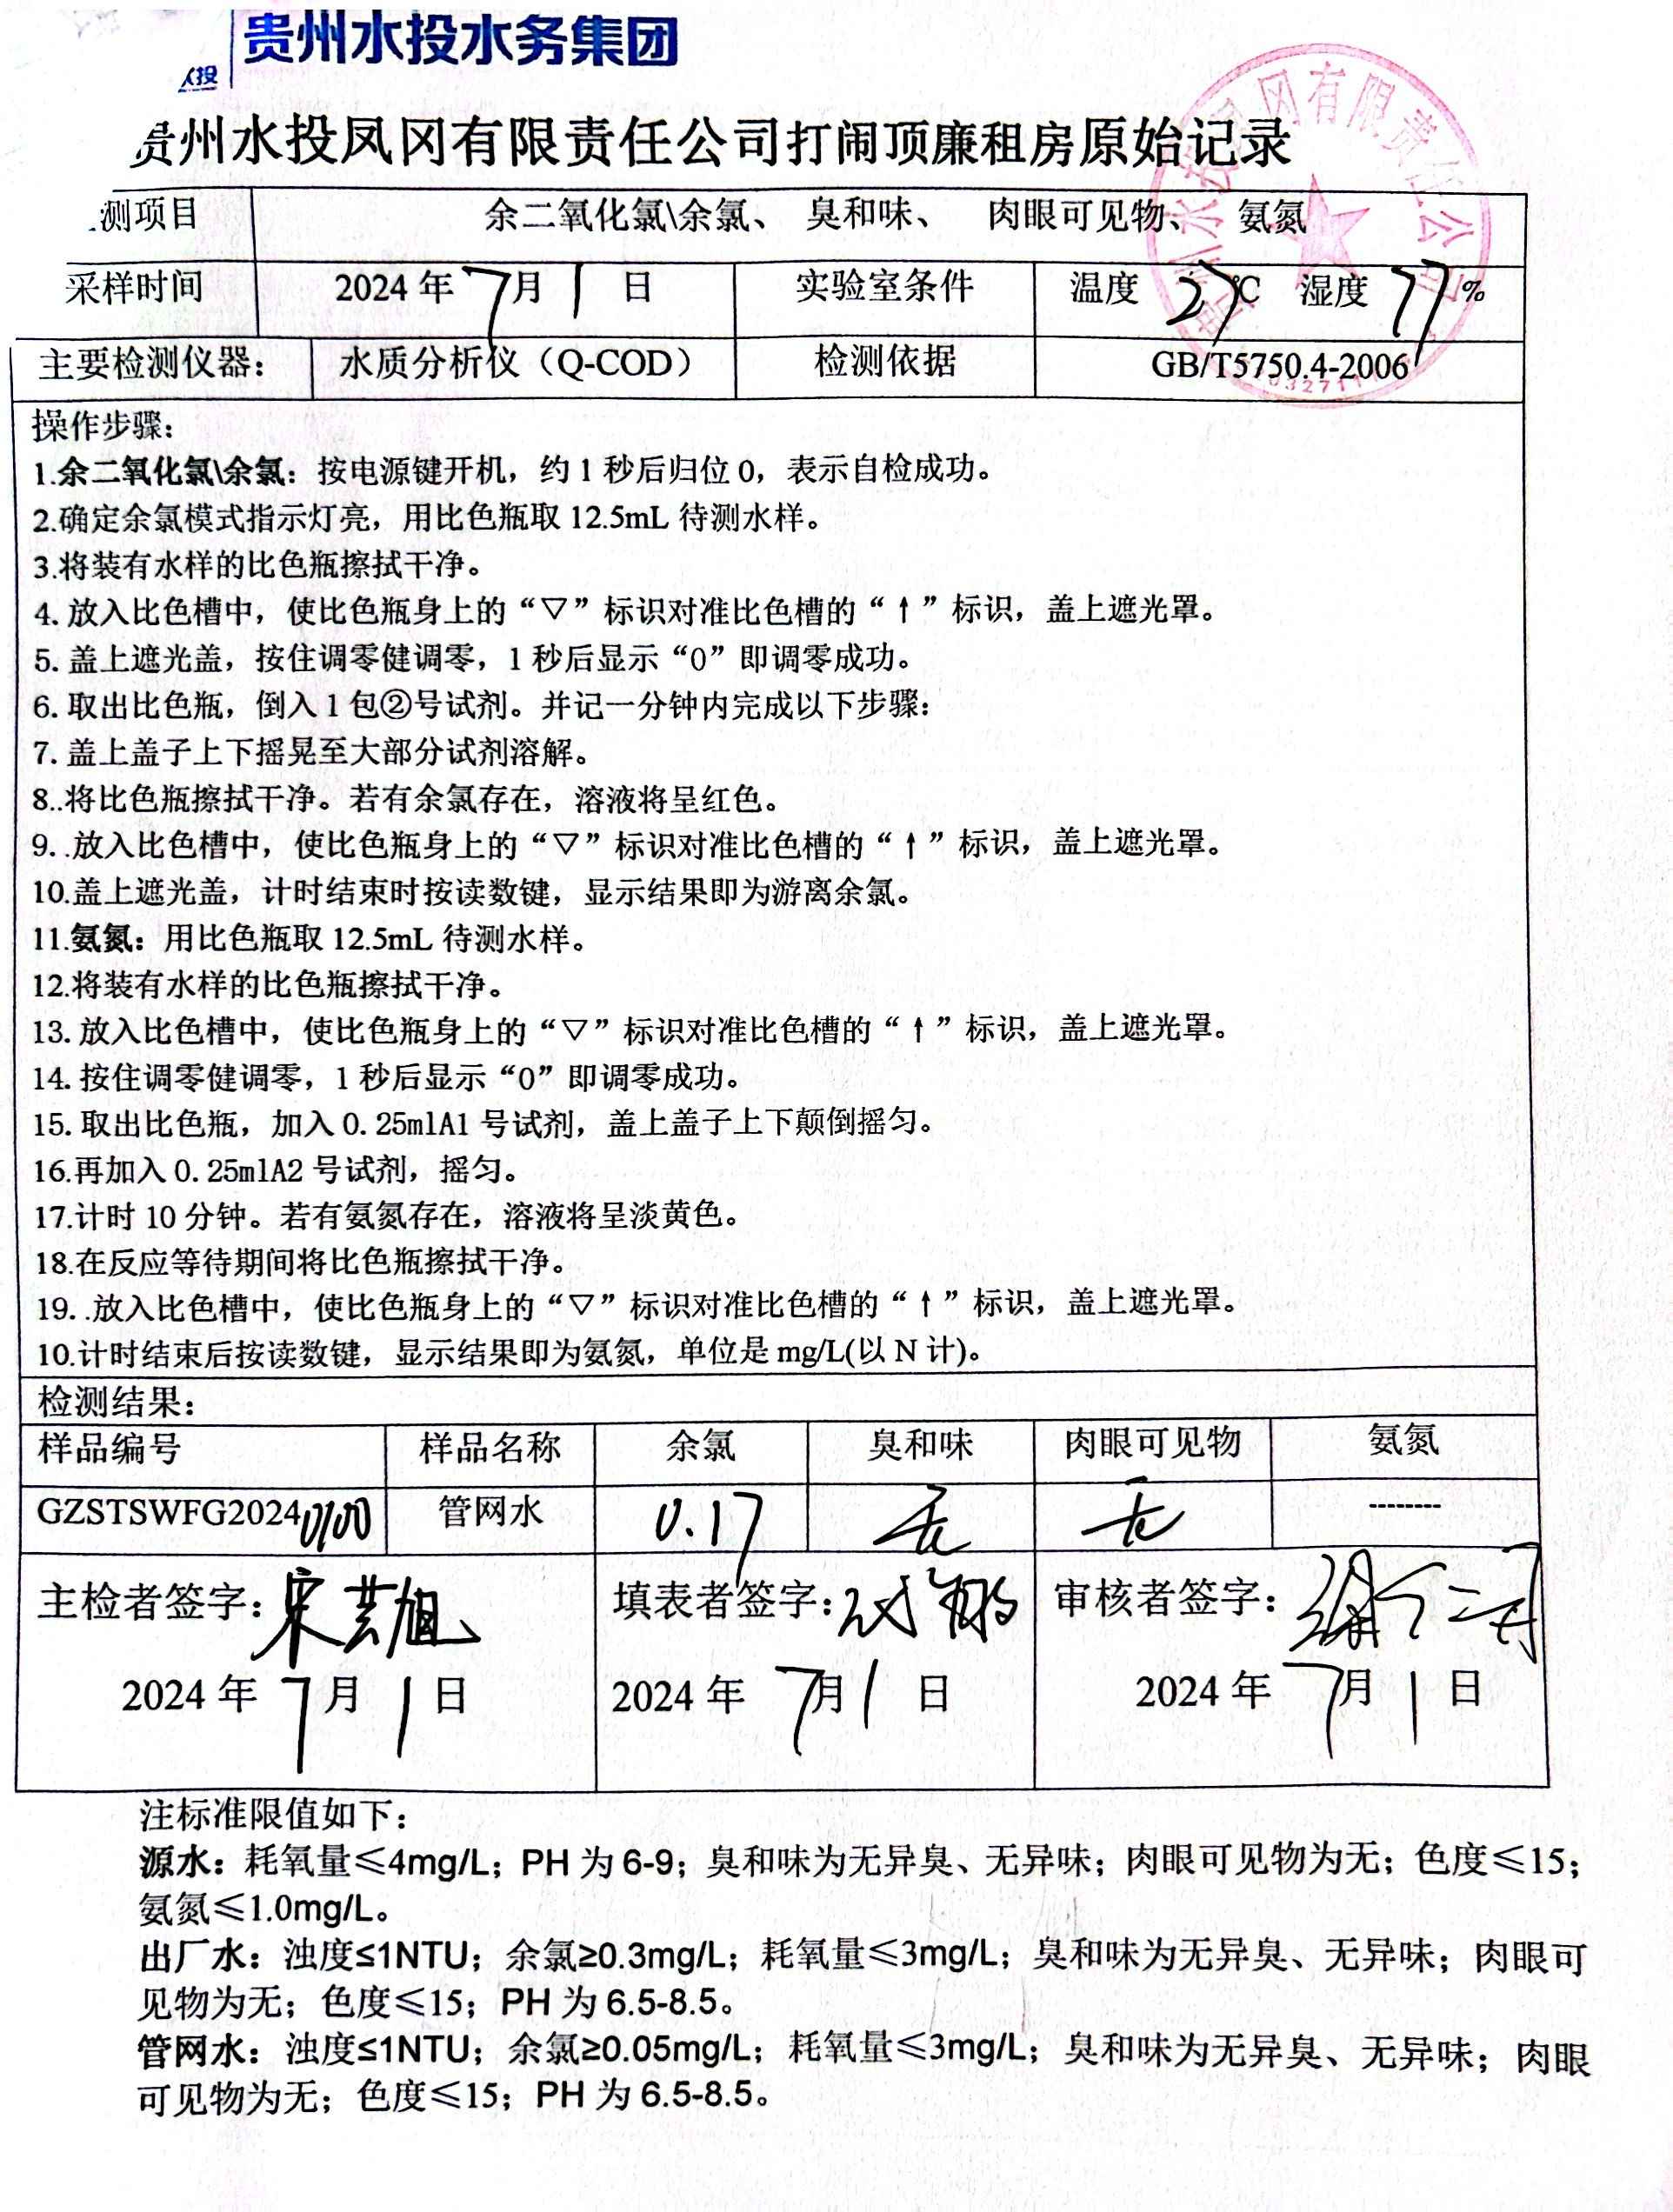 投
贵州水投水务集团
贵州水投凤冈有限责任公司打闹顶廉租房原始记录
测项目 余二氧化氯\余氯、 臭和味、 肉眼可见物、 氨氮
采样时间 2024 年 7 月 1 日 实验室条件 温度 27 ℃ 湿度 77 %
主要检测仪器： 水质分析仪（Q-COD） 检测依据 GB/T5750.4-2006
操作步骤：
1.余二氧化氯\余氯：按电源键开机，约 1 秒后归位 0，表示自检成功。
2.确定余氯模式指示灯亮，用比色瓶取 12.5mL 待测水样。
3.将装有水样的比色瓶擦拭干净。
4. 放入比色槽中，使比色瓶身上的“▽”标识对准比色槽的“↑”标识，盖上遮光罩。
5. 盖上遮光盖，按住调零健调零，1 秒后显示“0”即调零成功。
6. 取出比色瓶，倒入 1 包②号试剂。并记一分钟内完成以下步骤：
7. 盖上盖子上下摇晃至大部分试剂溶解。
8..将比色瓶擦拭干净。若有余氯存在，溶液将呈红色。
9. .放入比色槽中，使比色瓶身上的“▽”标识对准比色槽的“↑”标识，盖上遮光罩。
10.盖上遮光盖，计时结束时按读数键，显示结果即为游离余氯。
11.氨氮：用比色瓶取 12.5mL 待测水样。
12.将装有水样的比色瓶擦拭干净。
13. 放入比色槽中，使比色瓶身上的“▽”标识对准比色槽的“↑”标识，盖上遮光罩。
14. 按住调零健调零，1 秒后显示“0”即调零成功。
15. 取出比色瓶，加入 0.25mlA1 号试剂，盖上盖子上下颠倒摇匀。
16.再加入 0.25mlA2 号试剂，摇匀。
17.计时 10 分钟。若有氨氮存在，溶液将呈淡黄色。
18.在反应等待期间将比色瓶擦拭干净。
19. .放入比色槽中，使比色瓶身上的“▽”标识对准比色槽的“↑”标识，盖上遮光罩。
10.计时结束后按读数键，显示结果即为氨氮，单位是 mg/L(以 N 计)。
检测结果：
样品编号 样品名称 余氯 臭和味 肉眼可见物 氨氮
GZSTSWFG2024 管网水 0.17 无 无 --------
主检者签字：宋芸旭 填表者签字： 审核者签字：
2024 年 7 月 1 日 2024 年 7 月 1 日 2024 年 7 月 1 日
注标准限值如下：
源水：耗氧量≤4mg/L；PH 为 6-9；臭和味为无异臭、无异味；肉眼可见物为无；色度≤15；
氨氮≤1.0mg/L。
出厂水：浊度≤1NTU；余氯≥0.3mg/L；耗氧量≤3mg/L；臭和味为无异臭、无异味；肉眼可
见物为无；色度≤15；PH 为 6.5-8.5。
管网水：浊度≤1NTU；余氯≥0.05mg/L；耗氧量≤3mg/L；臭和味为无异臭、无异味；肉眼
可见物为无；色度≤15；PH 为 6.5-8.5。